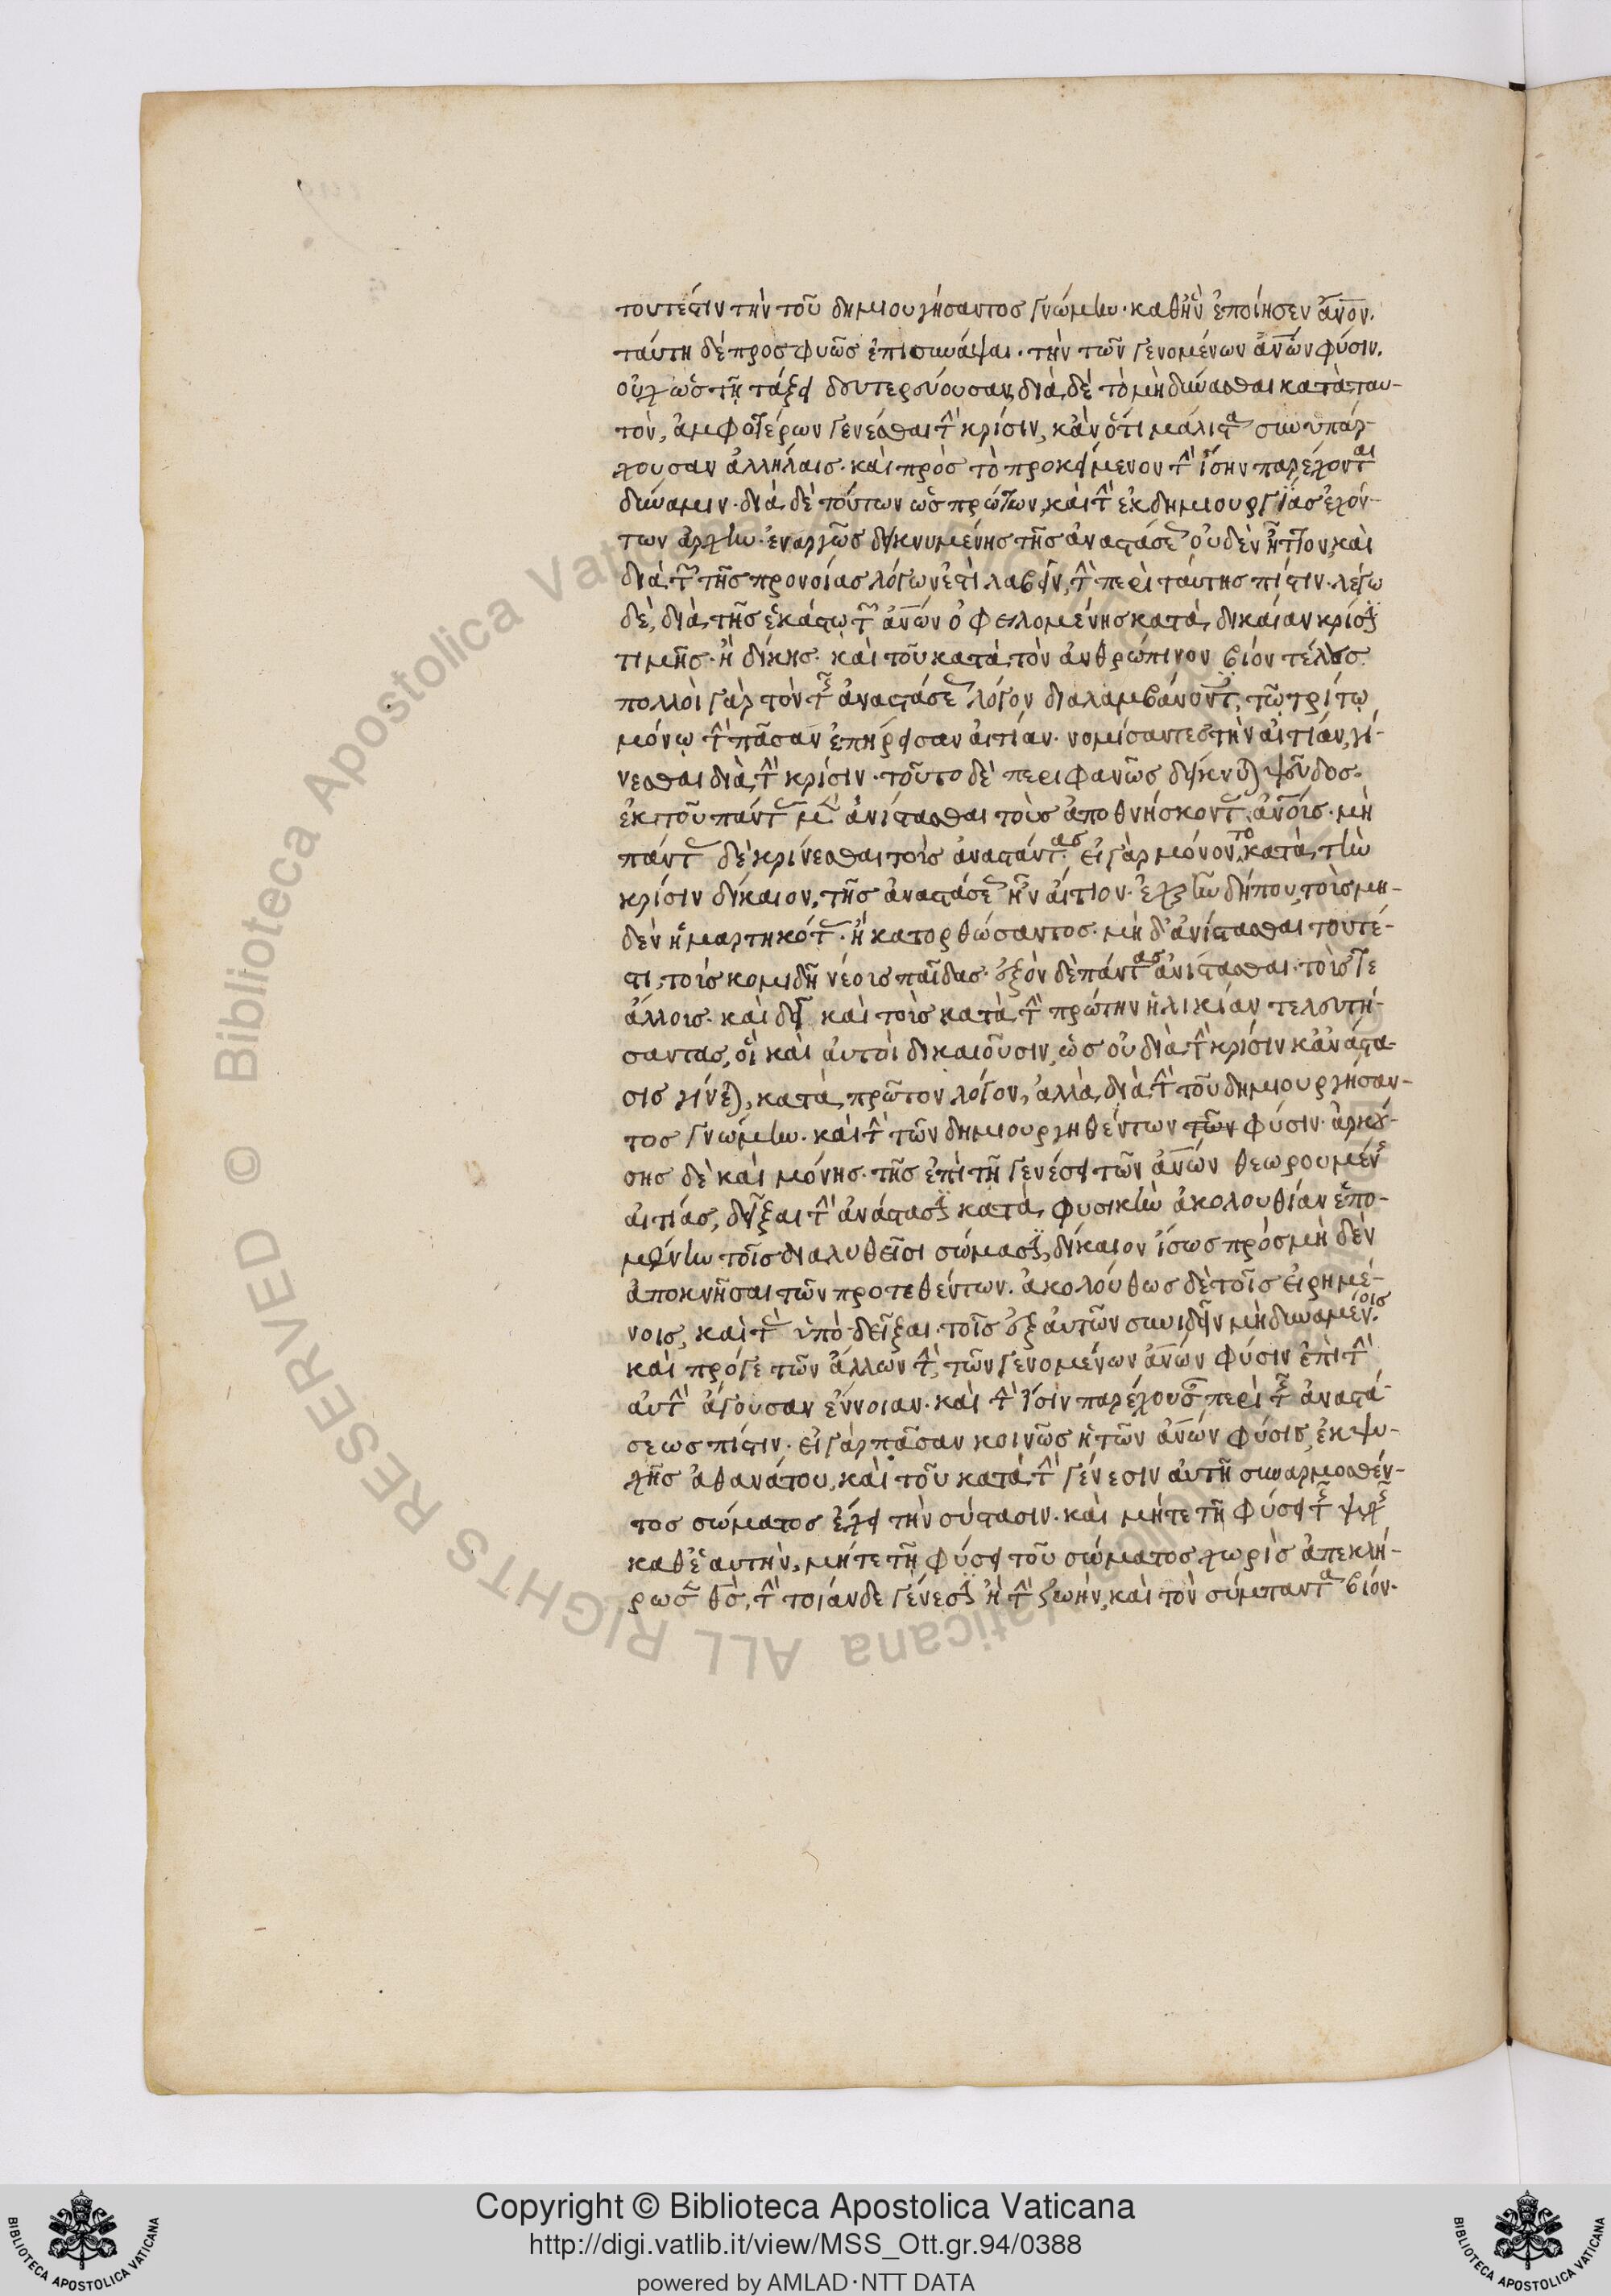 τουτέστιν τὴν τοῦ δημιουργήσαντος γνώμην· καθ' ἣν ἐποίησεν ἄνον.
ταύτη δὲ προσφυῶς ἐπισυνάψαι· τὴν τῶν γενομένων ἀνων φύσιν.
οὐχ ὡς τῇ τάξει δευτερεύουσαν, διὰ δὲ τὸ μὴ δύνασθαι κατὰ ταυ-
τὸν, ἀμφοτέρων γενέσθαι τὴν κρίσιν, κἂν ὅτι μάλιστα συνυπάρ-
χουσαν ἀλλήλαις· καὶ πρὸς τὸ προκείμενον τὴν ἴσην παρέχονται
δύναμιν· διὰ δὲ τούτων ὡς πρώτων, καὶ τὴν ἐκ δημιουργίας ἐχόν-
των ἀρχὴν· ἐναργῶς δεικνυμένης τῆς ἀναστάσεως οὐδὲν ἧττον, καὶ
διὰ τῶν τῆς προνοίας λόγων ἐστὶ λαβεῖν, τὴν περὶ ταύτης πίστιν· λέγω
δὲ, διὰ τῆς ἑκάστῳ τῶν ἀνων ὀφειλομένης κατὰ δικαίαν κρίσιν
τιμῆς· ἢ δίκης· καὶ τοῦ κατὰ τὸν ἀνθρώπινον βίον τέλους.
πολλοὶ γὰρ τὸν τῆς ἀναστάσεως λόγον διαλαμβάνοντες, τῷ τρίτῳ
μόνῳ τὴν πᾶσαν ἐπήρεισαν αἰτίαν· νομίσαντες τὴν αἰτίαν, γί-
νεσθαι διὰ τὴν κρίσιν· τοῦτο δὲ περιφανῶς δείκνυται ψεῦδος.
ἐκ τοῦ πάντας μὲν ἀνίστασθαι τοὺς ἀποθνήσκοντας ἀνοις· μὴ
πάντας δὲ κρίνεσθαι τοῖς ἀναστάντας· εἰ γὰρ μόνον τὸ κατὰ τὴν
κρίσιν δίκαιον, τῆς ἀναστάσεως ἦν αἴτιον· ἐχρῆν δήπου, τοὶς μη-
δὲν ἡμαρτηκότας· ἢ κατορθώσαντος· μὴ δ' ἀνίστασθαι τουτέ-
στι, τοὶς κομιδῆ νέοις παῖδας· ἐξὸν δὲ πάντας ἀνίστασθαι· τοὶς τε
ἄλλοις· καὶ δεῖ καὶ τοὶς κατὰ τὴν πρώτην ἡλικίαν τελευτή-
σαντας, οἳ καὶ αὐτοὶ δικαιοῦσιν, ὡς οὐ διὰ τὴν κρίσιν κἀνάστα-
σις γίνεται, κατὰ πρῶτον λόγον, ἀλλὰ διὰ τὴν τοῦ δημιουργήσαν-
τος γνώμην· καὶ τὴν τῶν δημιουργηθέντων τῶν φύσιν· ἀρκού-
σης δὲ καὶ μόνης· τῆς ἐπὶ τῇ γενέσει τῶν ἀνων θεωρουμένης
αἰτίας, δεῖξαι τὴν ἀνάστασιν κατὰ φυσικὴν ἀκολουθίαν ἑπο-
μένην τοῖς διαλυθεῖσι σώμασιν, δίκαιον ἴσως πρὸς μὴ δὲν
ἀποκνῆσαι τῶν προτεθέντων. ἀκολούθως δὲ τοῖς εἰρημέ-
νοις, καὶ τὰς ὑπὸ δεῖξαι· τοῖς ἐξ αὐτῶν συνιδεῖν μὴ δυναμένοις.
καὶ πρό γε τῶν ἄλλων τὴν, τῶν γενομένων ἀνων φύσιν ἐπὶ τὴν
αὐτὴν ἄγουσαν ἔννοιαν· καὶ τὴν ἴσιν παρέχουσαν περὶ τῆς ἀναστά-
σεως πίστιν· εἰ γὰρ πᾶσαν κοινῶς ἡ τῶν ἀνων φύσις, ἐκ ψυ-
χῆς ἀθανάτου, καὶ τοῦ κατὰ τὴν γένεσιν αὐτῇ συναρμοσθέν-
τος σώματος ἔχει τὴν σύστασιν· καὶ μήτε τῇ φύσει τῆς ψυχῆς
καθ' ἑαυτὴν, μήτε τῇ φύσει τοῦ σώματος χωρὶς ἀπεκλή-
ρωσεν θς, τὴν τοιάνδε γένεσιν ἢ τὴν ζωὴν, καὶ τὸν σύμπαντα βίον·
Copyright © Biblioteca Apostolica Vaticana
http://digi.vatlib.it/view/MSS_Ott.gr.94/0388
powered by AMLAD·NTT DATA